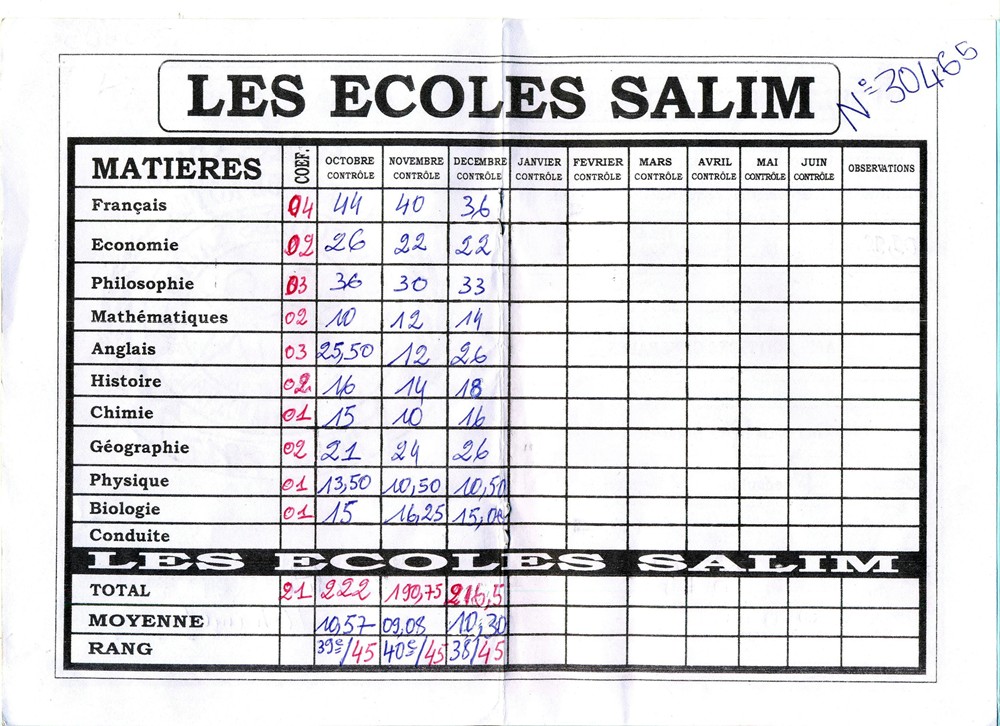 LES ECOLES SALIM
N°=30465
MATIERES COEF. OCTOBRE CONTRÔLE NOVEMBRE CONTRÔLE DECEMBRE CONTRÔLE JANVIER CONTRÔLE FEVRIER CONTRÔLE MARS CONTRÔLE AVRIL CONTRÔLE MAI CONTRÔLE JUIN CONTRÔLE OBSERVATIONS
Français 04 44 40 36
Economie 02 26 22 22
Philosophie 03 36 30 33
Mathématiques 02 10 12 14
Anglais 03 25,50 12 26
Histoire 02 16 14 18
Chimie 01 15 10 16
Géographie 02 21 24 26
Physique 01 13,50 10,50 10,50
Biologie 01 15 16,25 15,00
Conduite
LES ECOLES SALIM
TOTAL 21 222 190,75 216,5
MOYENNE 10,57 09,08 10,30
RANG 39e/45 40e/45 38/45